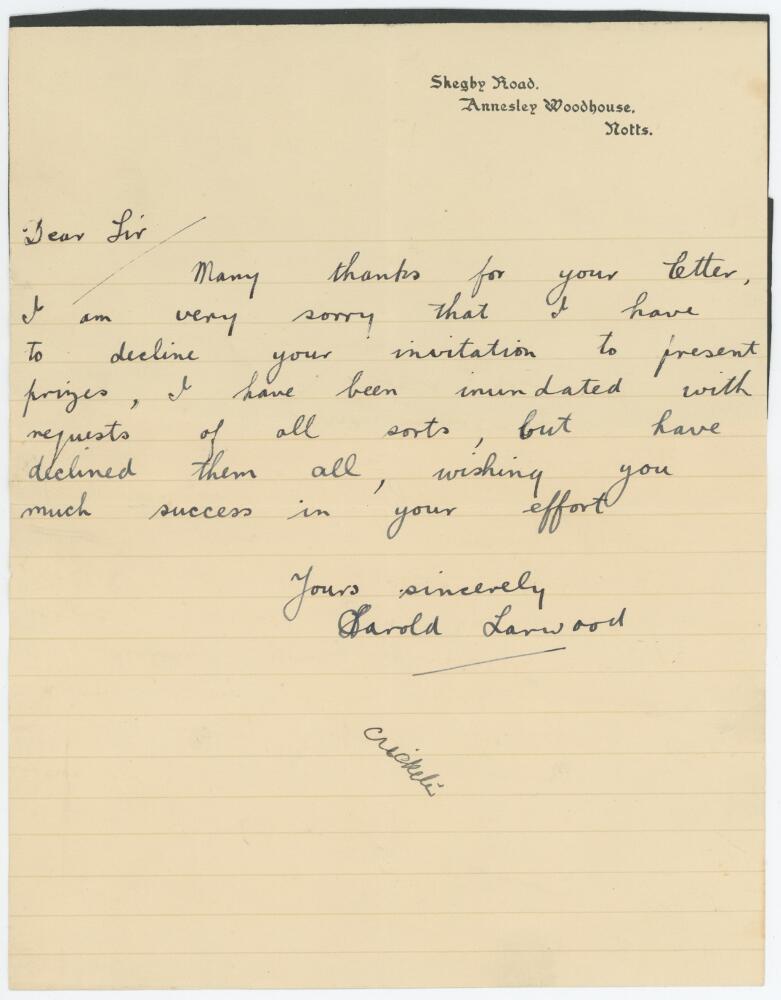 Skegby Road.
Annesley Woodhouse.
Notts.
Dear Sir
Many thanks for your letter,
I am very sorry that I have
to decline your invitation to present
prizes, I have been inundated with
requests of all sorts, but have
declined them all, wishing you
much success in your effort
Yours sincerely
Harold Larwood